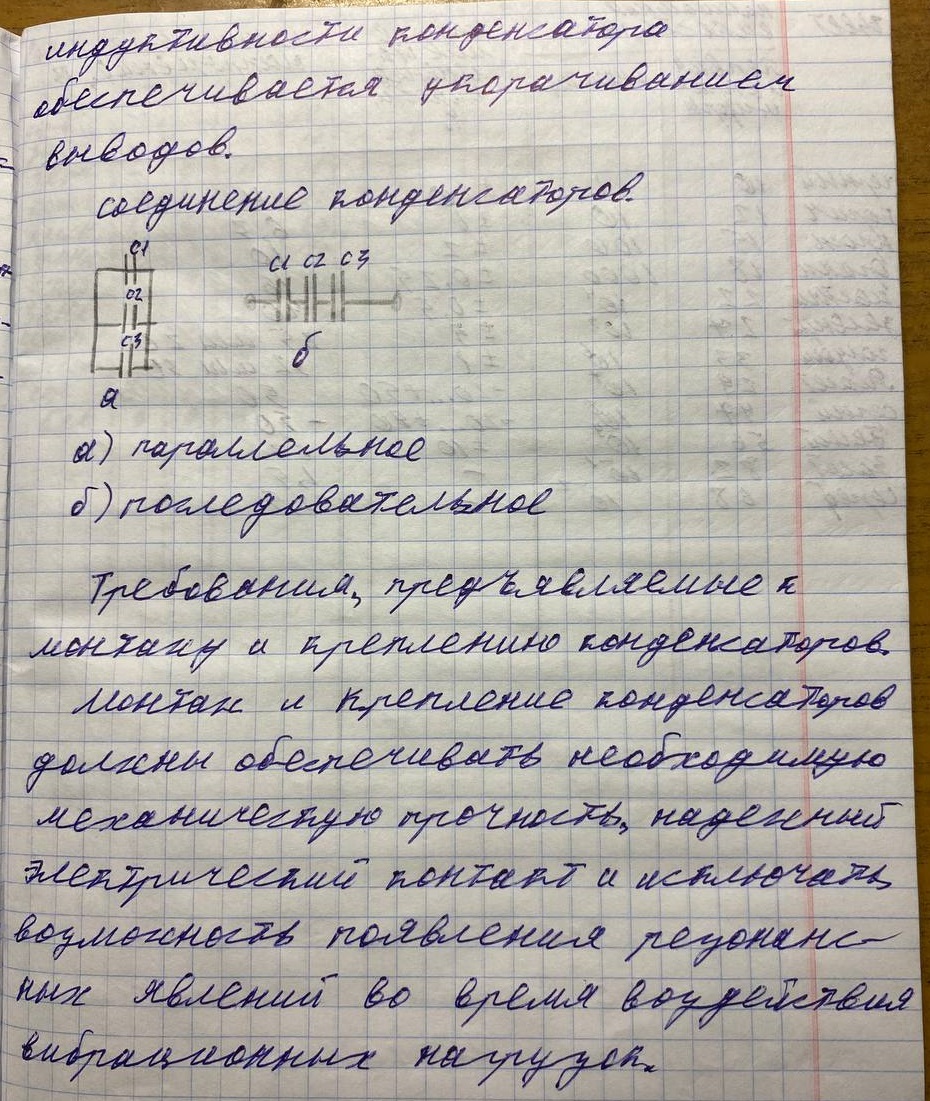 индуктивности конденсатора
обеспечивается укорачиванием
выводов.
соединение конденсаторов.
C1
C2
C3
а
C1 C2 C3
б
а) параллельное
б) последовательное
Требования, предъявляемые к
монтажу и креплению конденсаторов.
Монтаж и крепление конденсаторов
должны обеспечивать необходимую
механическую прочность, надежный
электрический контакт и исключать
возможность появления резонанс-
ных явлений во время воздействия
вибрационных нагрузок.